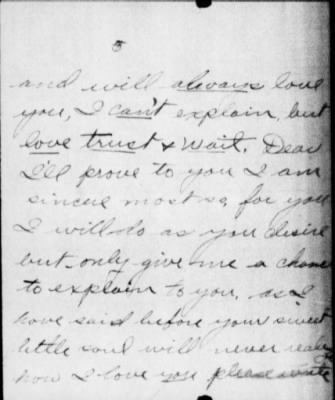 5
and will always love
you, I can't explain, but
love trust & wait. Dear
I'll prove to you I am
sincere most so, for you
I will do as you desire
but only give me a chance
to explain to you, as I
have said before your sweet
little soul will never realize
how I love you please write